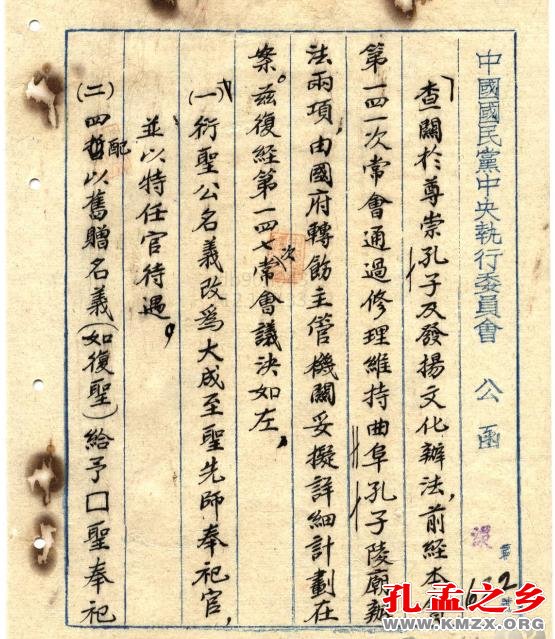 中國國民黨中央執行委員會 公函
第 632 號
「查關於尊崇孔子及發揚文化辦法,前經本會
第一四一次常會通過修理維持曲阜孔子陵廟辦
法兩項,由國府轉飭主管機關妥擬詳細計劃在
案。茲復經第一四七次常會議決如左,
(一)衍聖公名義改為大成至聖先師奉祀官,
並以特任官待遇。
(二)四配以舊贈名義(如復聖)給予□聖奉祀
孔孟之乡
WWW.KMZX.ORG